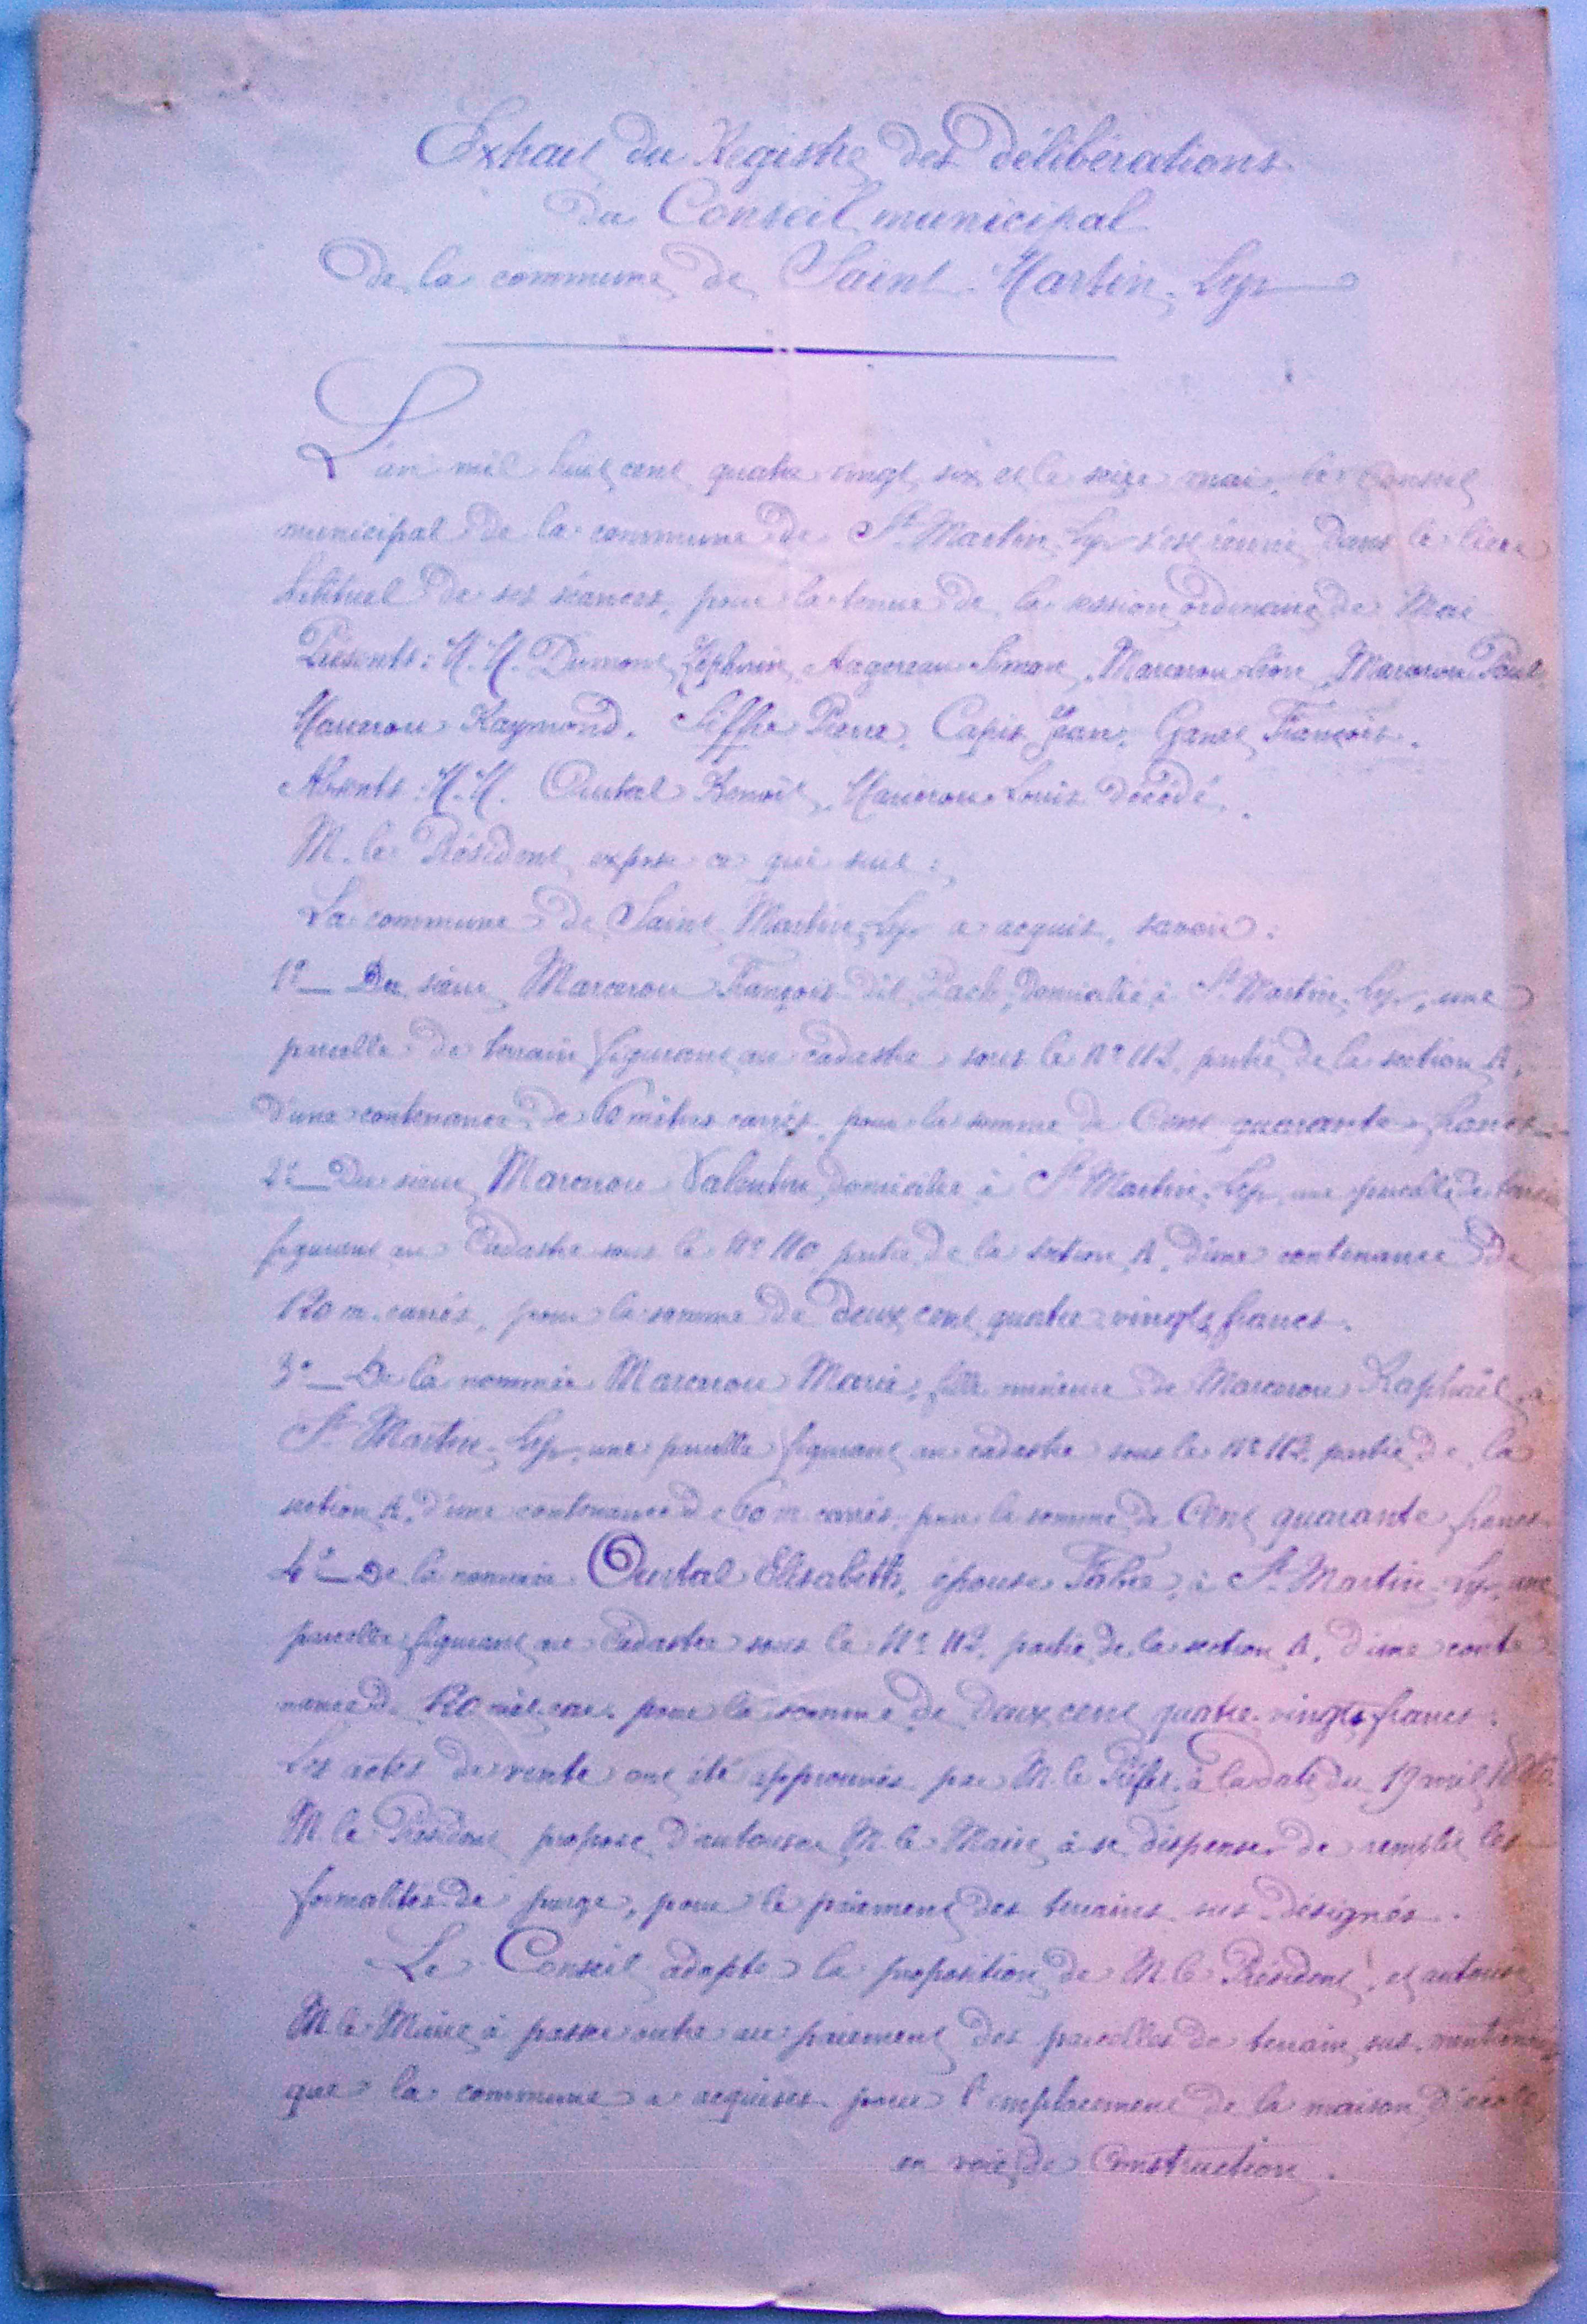 Extrait du Registre des délibérations
du Conseil municipal
de la commune de Saint-Martin-Lys
L'an mil huit cent quatre vingt six et le seize mai, le Conseil
municipal de la commune de St Martin-Lys s'est réuni dans le lieu
habituel de ses séances, pour la tenue de la session ordinaire de Mai
Présents: M.M. Dumont Zéphirin, Augereau Simon, Marcerou Léon, Marcerou Paul
Marcerou Raymond, Siffre Pierre, Capis Jean, François.
Absents: M.M. Oustal Benoît, Marcerou Louis décédé.
M. le Président expose ce qui suit:
La commune de Saint Martin-Lys a acquis, savoir:
1º_ Du sieur Marcerou François dit domicilié à St Martin-Lys, une
parcelle de terrain figurant au cadastre sous le nº 112 partie de la section A,
d'une contenance de 60 mètres carrés, pour la somme de Cent quarante francs
2º_ Du sieur Marcerou Valentin domicilié à St Martin-Lys, une parcelle de terrain
figurant au Cadastre sous le nº 110 partie de la section A, d'une contenance de
120 m. carrés, pour la somme de deux cent quatre vingts francs.
3º_ De la nommée Marcerou Marie, fille mineure de Marcerou Raphaël, à
St Martin-Lys, une parcelle figurant au cadastre sous le nº 112 partie de la
section A, d'une contenance de 60 m. carrés, pour la somme de Cent quarante francs
4º_ De la nommée Oustal Elisabeth, épouse Fabre, à St Martin-Lys, une
parcelle figurant au Cadastre sous le nº 112 partie de la section A, d'une conte
nance de 120 mèt. car. pour la somme de Deux cent quatre-vingts francs.
Les actes de vente ont été approuvés par M. le Préfet à la date du 19 avril 1886.
M. le Président propose d'autoriser M. le Maire à se dispenser de remplir les
formalités de purge, pour le paiement des terrains sus-désignés.
Le Conseil adopte la proposition de M. le Président, et autorise
M. le Maire à passer outre au paiement des parcelles de terrain sus-mentionnées
que la commune a acquises pour l'emplacement de la maison d'école
en voie de Construction.